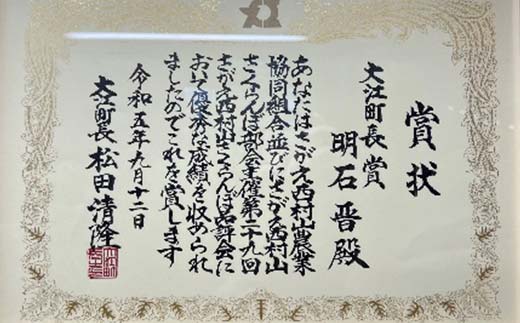 賞状
大江町長賞
明石 晋殿
あなたはさがえ西村山農業
協同組合並びにさがえ西村山
さくらんぼ部会主催第二十九回
さがえ西村山さくらんぼ品評会に
おいて優秀な成績を収められ
ましたのでこれを賞します
令和五年九月十二日
大江町長 松田清隆